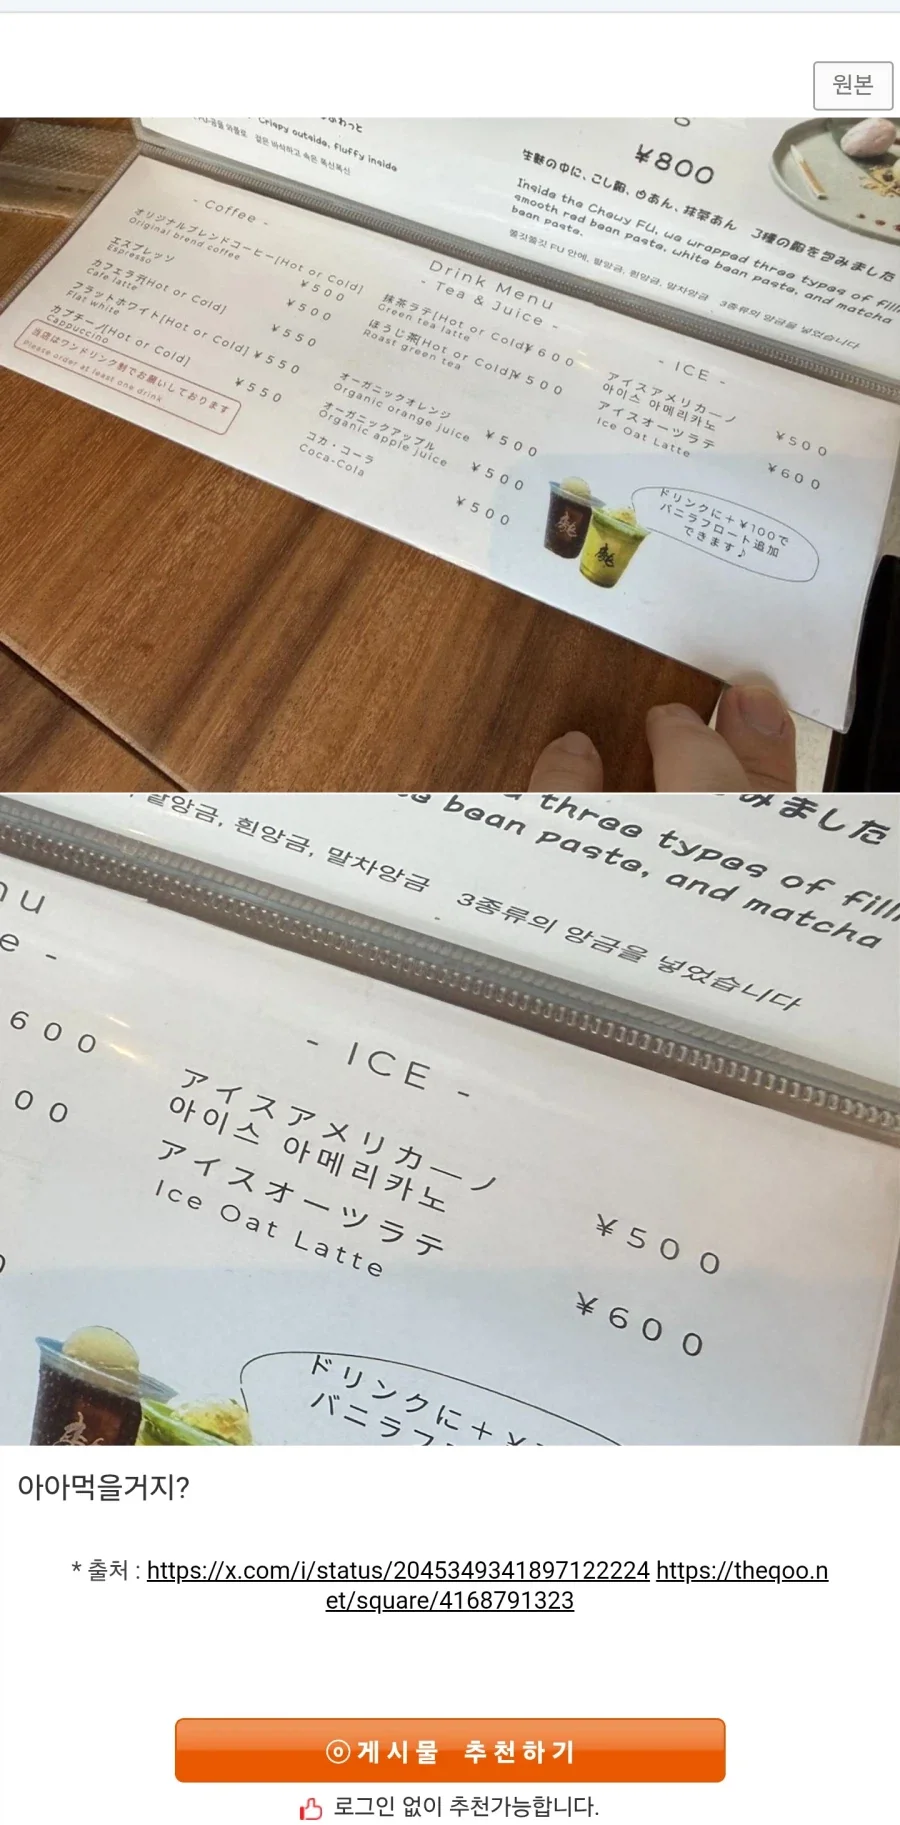 원본
ふわっと
Crispy outside, fluffy inside
겉은 바삭하고 속은 폭신폭신
¥800
生麩の中に、こし餡、白あん、抹茶あん 3種の餡を包みました
Inside the Chewy FU, we wrapped three types of filli
smooth red bean paste, white bean paste, and matcha
bean paste.
쫄깃쫄깃 FU 안에, 팥앙금, 흰앙금, 말차앙금 3종류의 앙금을 넣었습니다
- Coffee -
オリジナルブレンドコーヒー[Hot or Cold]
Original blend coffee
¥500
エスプレッソ
Espresso
¥500
カフェラテ[Hot or Cold]
Cafe latte
¥550
フラットホワイト[Hot or Cold] ¥550
Flat white
カプチーノ[Hot or Cold]
Cappuccino
¥550
当店はワンドリンク制でお願いしております
Please order at least one drink
Drink Menu
- Tea & Juice -
抹茶ラテ[Hot or Cold]¥600
Green tea latte
ほうじ茶[Hot or Cold]¥500
Roast green tea
オーガニックオレンジ
Organic orange juice ¥500
オーガニックアップル
Organic apple juice ¥500
コカ・コーラ
Coca-Cola
¥500
- ICE -
アイスアメリカーノ
아이스 아메리카노
¥500
アイスオーツラテ
Ice Oat Latte
¥600
ドリンクに+¥100で
バニラフロート追加
できます♪
みました
three types of filli
bean paste, and matcha
팥앙금, 흰앙금, 말차앙금 3종류의 앙금을 넣었습니다
nu
e -
600
00
- ICE -
アイスアメリカーノ
아이스 아메리카노
¥500
アイスオーツラテ
Ice Oat Latte
¥600
ドリンクに+¥
バニラフ
아아먹을거지?
* 출처 : https://x.com/i/status/2045349341897122224 https://theqoo.n
et/square/4168791323
게시물 추천하기
로그인 없이 추천가능합니다.